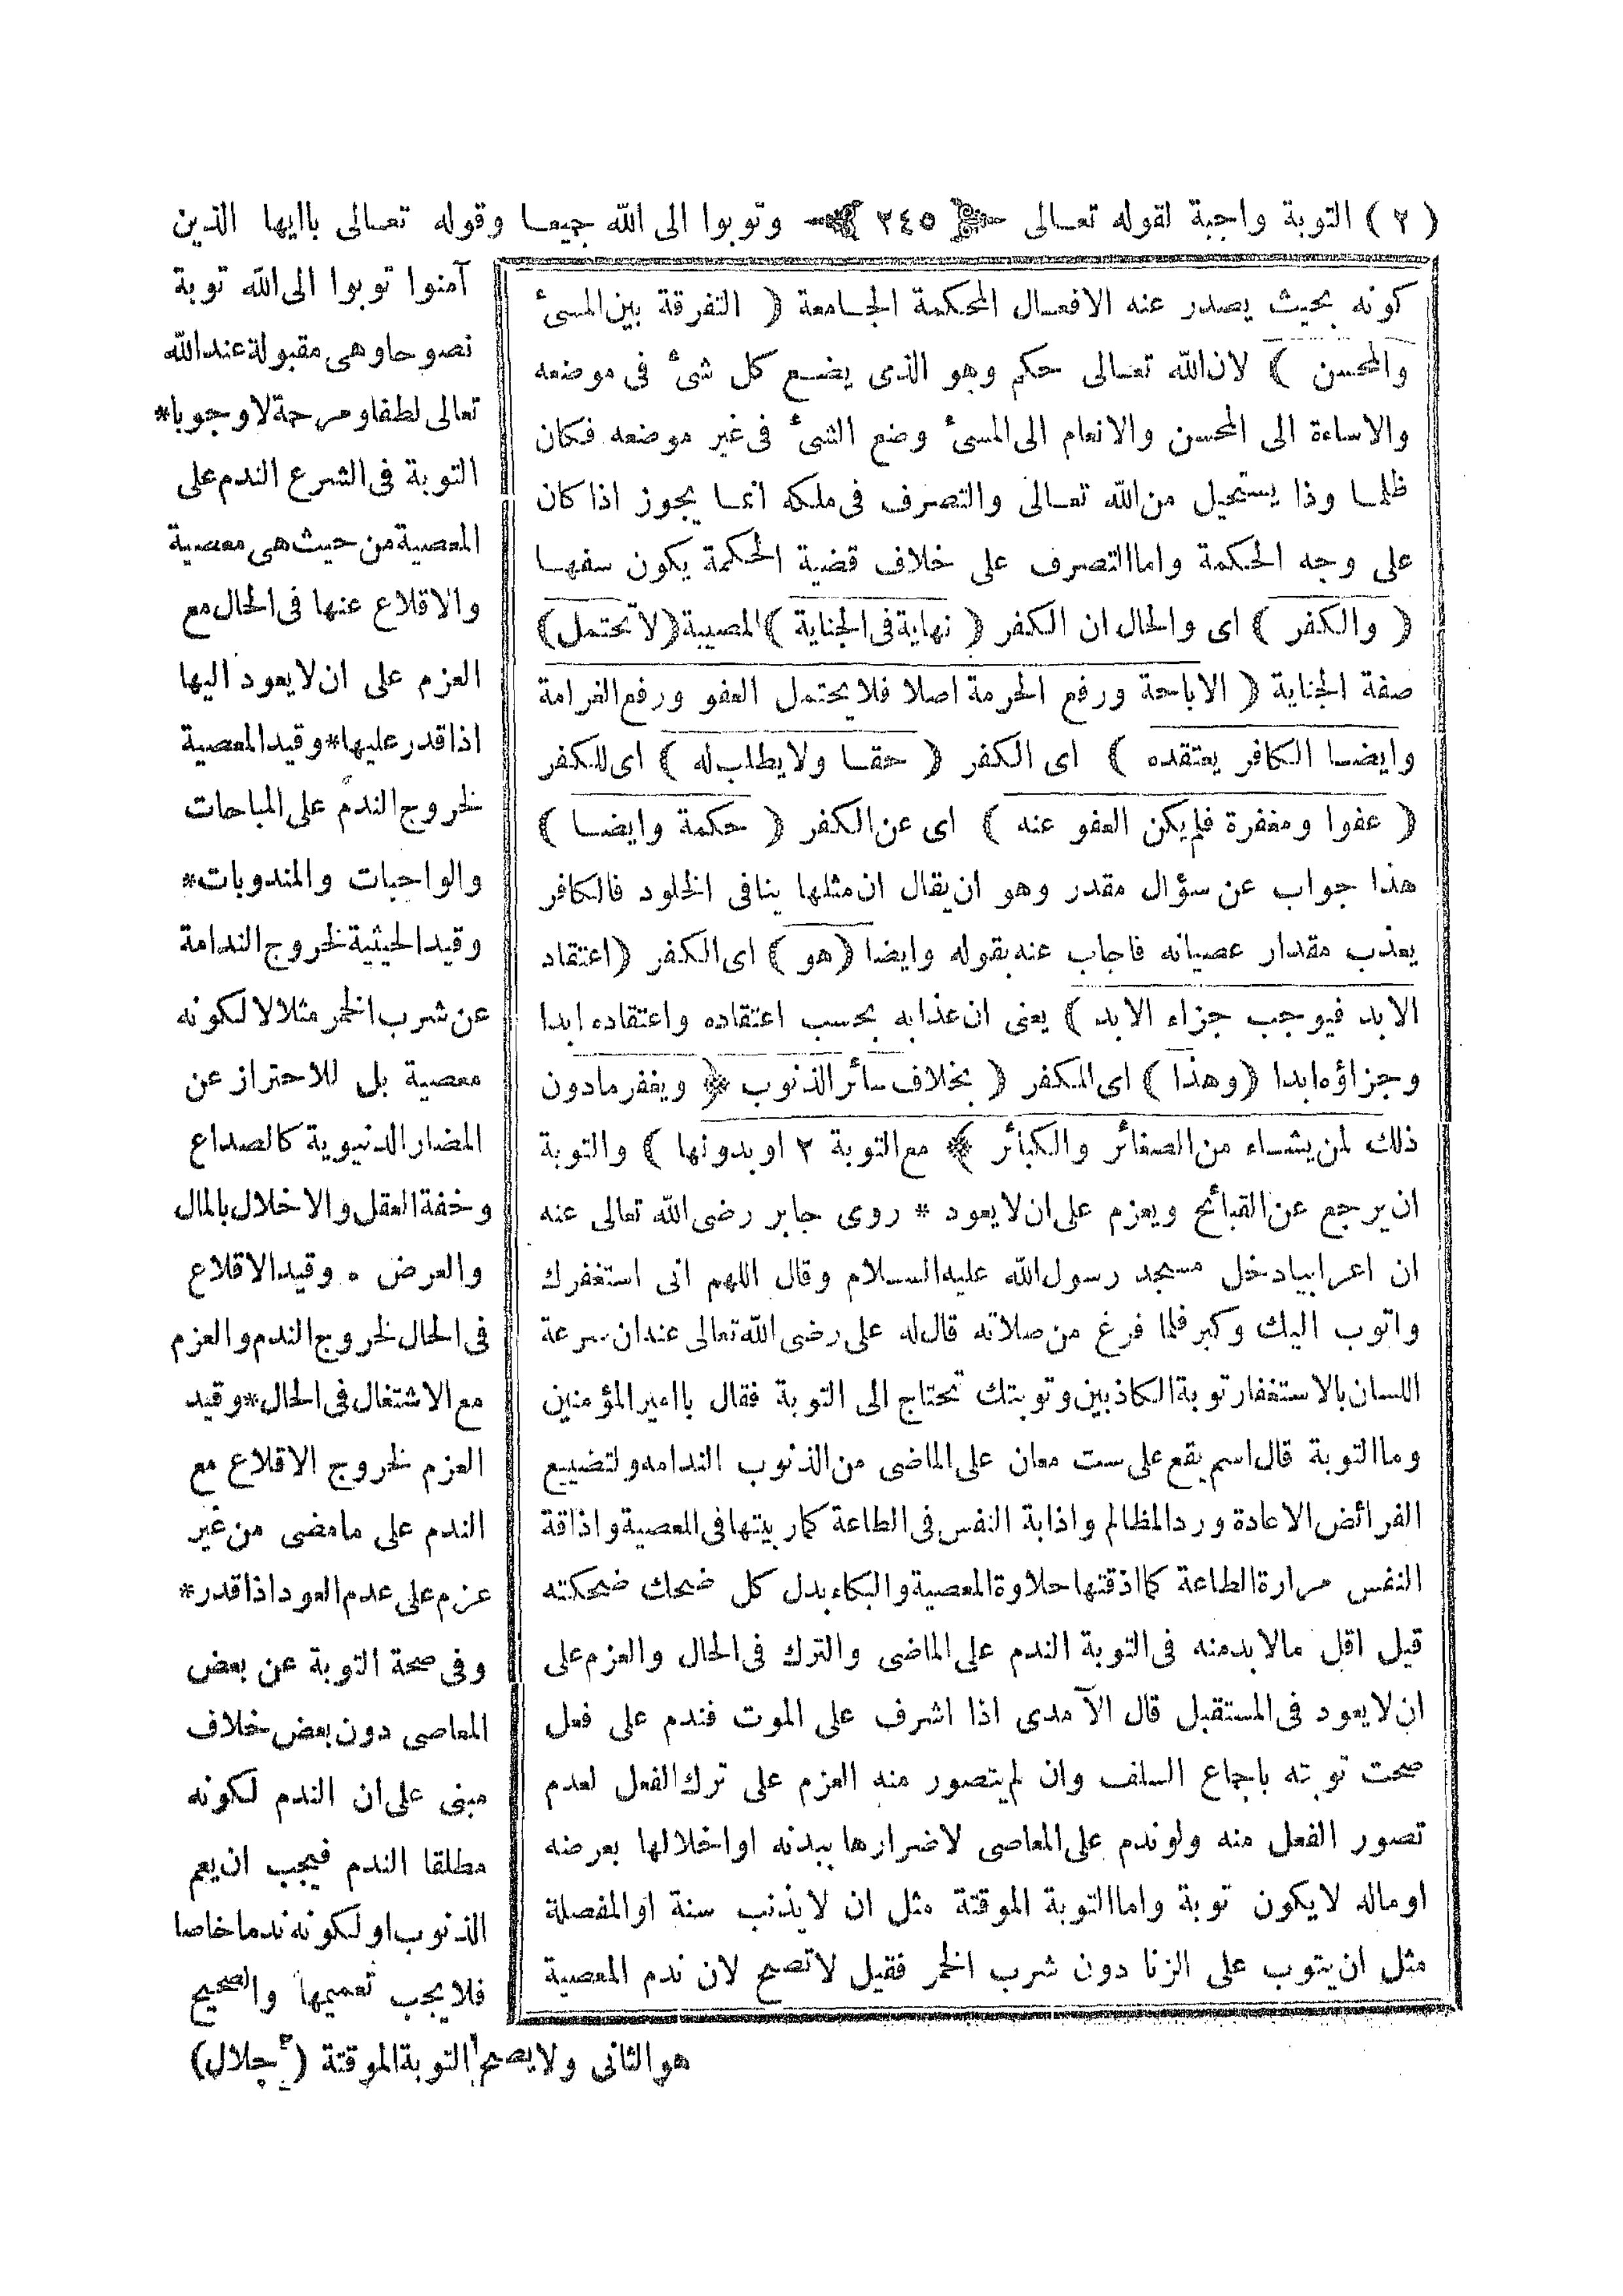 (٢) التوبة واجبة لقوله تعـالى ﴿ ٣٤٥ ﴾ وتوبوا الى الله جيعـا وقوله تعـالى ياايها الذين
كونه بحيث يصدر عنه الافعـال المحكمة الجـامعة ( التفرقة بين المسئ
والمحسن ) لان الله تعـالى حكم وهو الذى يضـع كل شئ فى موضعه
والاساءة الى المحسن والانعام الى المسئ وضع الشئ فى غير موضعه فكان
ظلمـا وذا يستحيل من الله تعـالى والتصرف فى ملكه انمـا يجوز اذا كان
على وجه الحكمة واما التصرف على خلاف قضية الحكمة يكون سفهـا
( والكفر ) اى والحال ان الكفر ( نهاية فى الجناية ) المصيبة ( لا تحتمل )
صفة الجناية ( الاباحة ورفع الحرمة اصلا فلا يحتمل العفو ورفع الغرامة
وايضـا الكافر يعتقده ) اى الكفر ( حقـا ولا يطلب له ) اى للكفر
( عفوا ومغفرة فلم يكن العفو عنه ) اى عن الكفر ( حكمة وايضـا )
هذا جواب عن سؤال مقدر وهو ان يقال ان مثلها ينافى الخلود فالكافر
يعذب مقدار عصيانه فاجاب عنه بقوله وايضا ( هو ) اى الكفر ( اعتقاد
الابد فيوجب جزاء الابد ) يعنى ان عذابه بحسب اعتقاده واعتقاده ابدا
وجزاؤه ابدا ( وهذا ) اى المكفر ( بخلاف سائر الذنوب * ويغفر مادون
ذلك لمن يشـاء من الصغائر والكبائر * مع التوبة ٢ او بدونها ) والتوبة
ان يرجع عن القبائح ويعزم على ان لا يعود * روى جابر رضى الله تعالى عنه
ان اعرابيا دخل مسجد رسول الله عليه السلام وقال اللهم انى استغفرك
واتوب اليك وكبر فلما فرغ من صلاته قال له على رضى الله تعالى عند ان سرعة
اللسان بالاستغفار توبة الكاذبين وتوبتك تحتاج الى التوبة فقال ياامير المؤمنين
وما التوبة قال اسم يقع على ست معان على الماضى من الذنوب الندامه ولتضييع
الفرائض الاعادة ورد المظالم واذابة النفس فى الطاعة كما ربيتها فى المعصية واذاقة
النفس مرارة الطاعة كما اذقتها حلاوة المعصية والبكاء بدل كل ضحك ضحكته
قيل اقل مالابد منه فى التوبة الندم على الماضى والترك فى الحال والعزم على
ان لا يعود فى المستقبل قال الآمدى اذا اشرف على الموت فندم على فعل
صحت توبته باجماع السلف وان لم يتصور منه العزم على ترك الفعل لعدم
تصور الفعل منه ولو ندم على المعاصى لاضرارها ببدنه او اخلالها بعرضه
او ماله لا يكون توبة واما التوبة الموقتة مثل ان لا يذنب سنة او المفصلة
مثل ان يتوب على الزنا دون شرب الخمر فقيل لا تصح لان ندم المعصية
آمنوا توبوا الى الله توبة
نصوحا وهى مقبولة عند الله
تعالى لطفا ومرحة لا وجوبا*
التوبة فى الشرع الندم على
المعصية من حيث هى معصية
والاقلاع عنها فى الحال مع
العزم على ان لا يعود اليها
اذا قدر عليها * وقيد المعصية
لخروج الندم على المباحات
والواجبات والمندوبات*
وقيد الحيثية لخروج الندامة
عن شرب الخمر مثلا لا لكونه
معصية بل للاحتراز عن
المضار الدنيوية كالصداع
وخفة العقل والاخلال بالمال
والعرض . وقيد الاقلاع
فى الحال لخروج الندم والعزم
مع الاشتغال فى الحال * وقيد
العزم لخروج الاقلاع مع
الندم على مامضى من غير
عزم على عدم العود اذا قدر*
وفى صحة التوبة عن بعض
المعاصى دون بعض خلاف
مبنى على ان الندم لكونه
مطلقا الندم فيجب ان يعم
الذنوب او لكونه ندما خاصا
فلا يجب تعميمها والصحيح
هو الثانى ولا يصح التوبة الموقتة ( جلال )